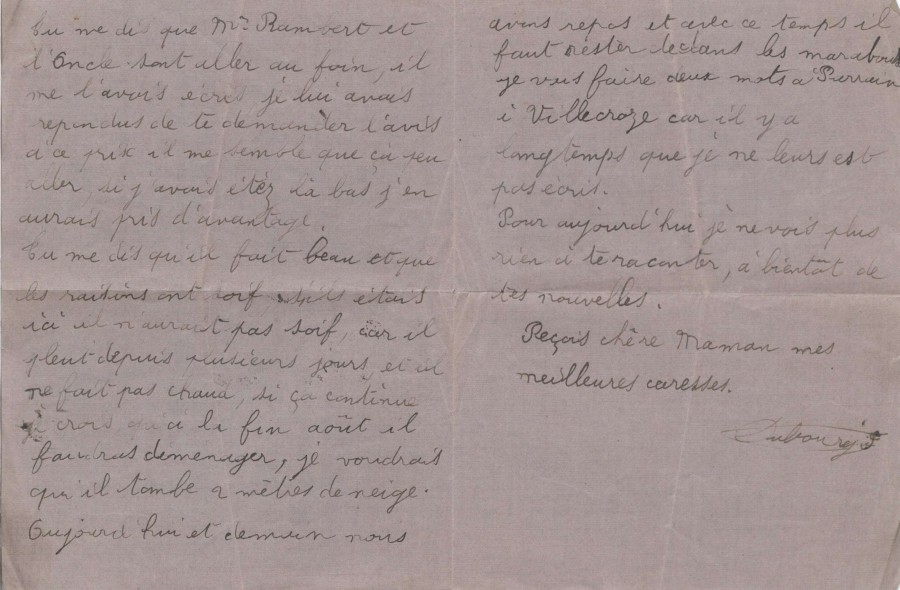 Tu me dis que Mr Rambert et
l'Oncle sont aller au foin, il
me l'avais écris je lui avais
repondus de te demander l'avis
a ce prix il me semble que ça peu
aller, si j'avais étéz la bas j'en
aurais pris d'avantage.
Tu me dis qu'il fait beau et que
les raisins ont soif s'ils était
ici il n'aurait pas soif, car il
pleut depuis plusieurs jours, et il
ne fait pas chaud, si ça continue
je crois qu'a la fin août il
faudras demenager, je voudrait
qu'il tombe 2 mètres de neige.
Aujourd'hui et demain nous
avons repos et avec ce temps il
faut réster dedans les marabout
je vais faire deux mots a
a Villecroze car il y a
longtemps que je ne leurs est
pas écris.
Pour aujourd'hui je ne vois plus
rien à te raconter, à bientôt de
tes nouvelles.
Reçois chère Maman mes
meilleures caresses.